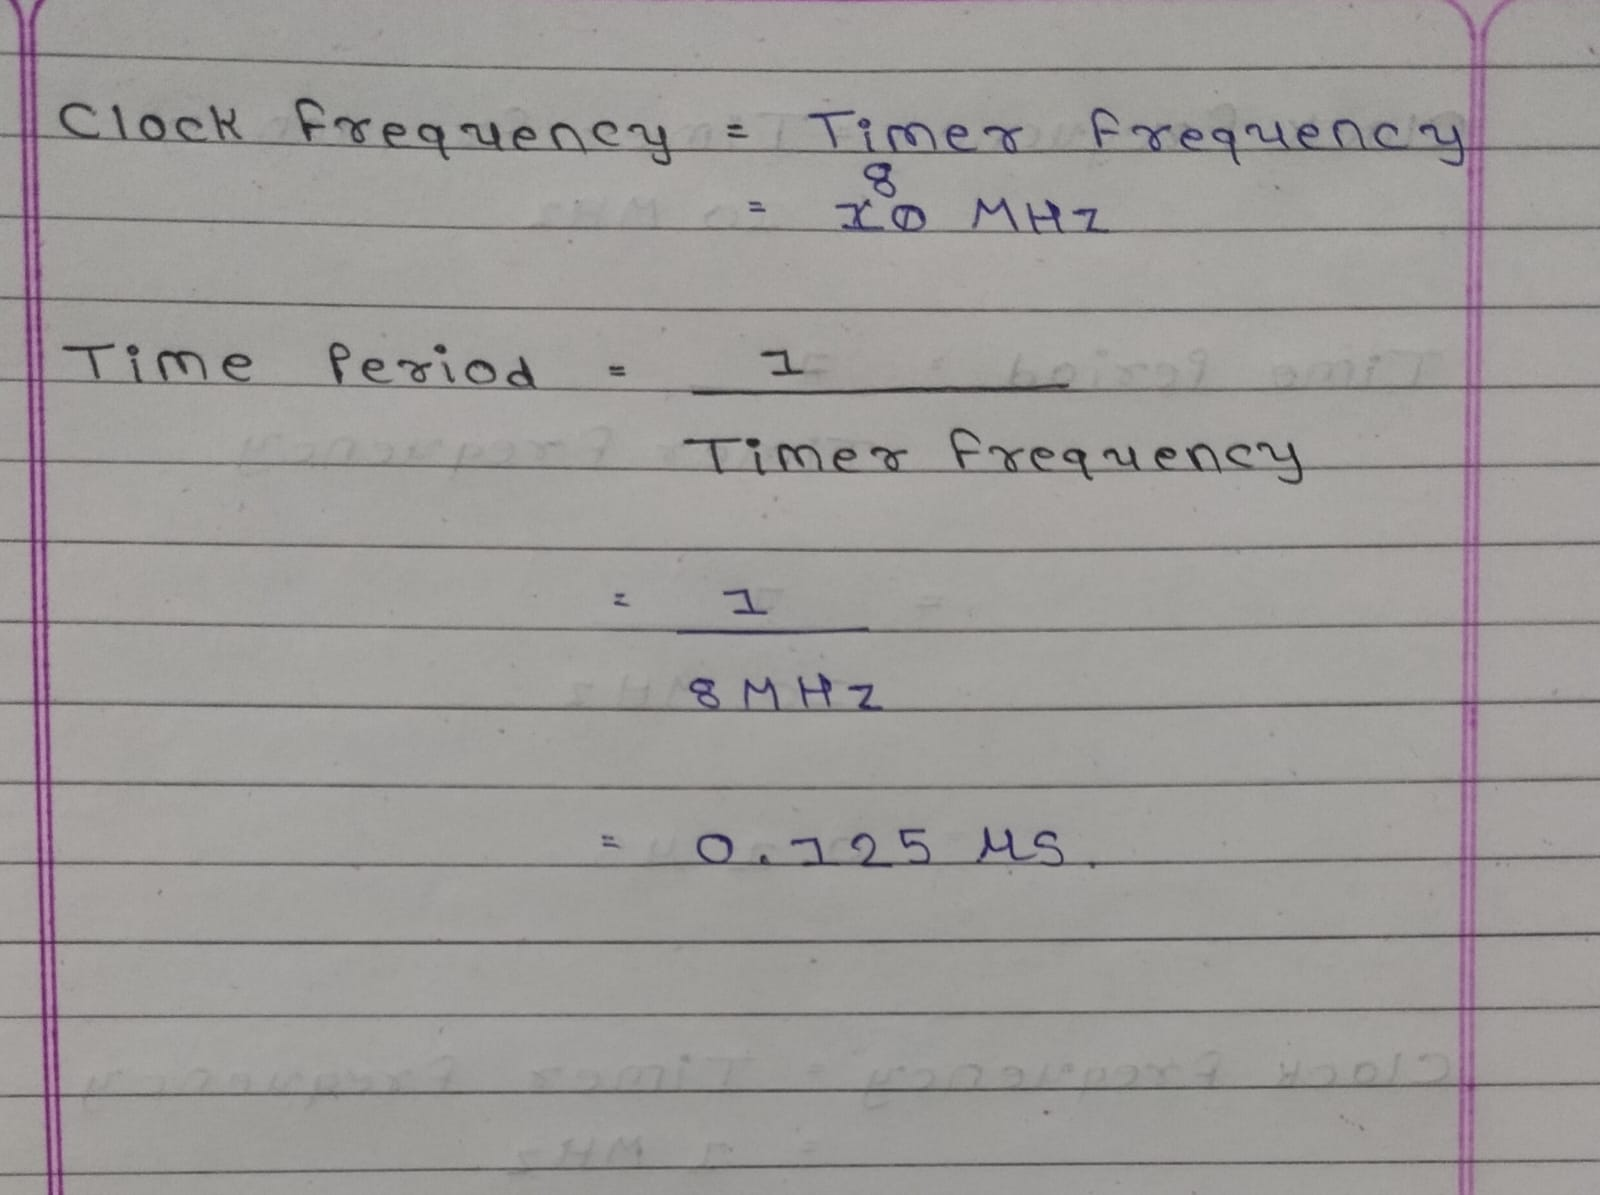 Clock Frequency = Timer Frequency
8
= 10 MHz
Time Period = 1
Timer Frequency
= 1
8 MHz
= 0.125 μs.